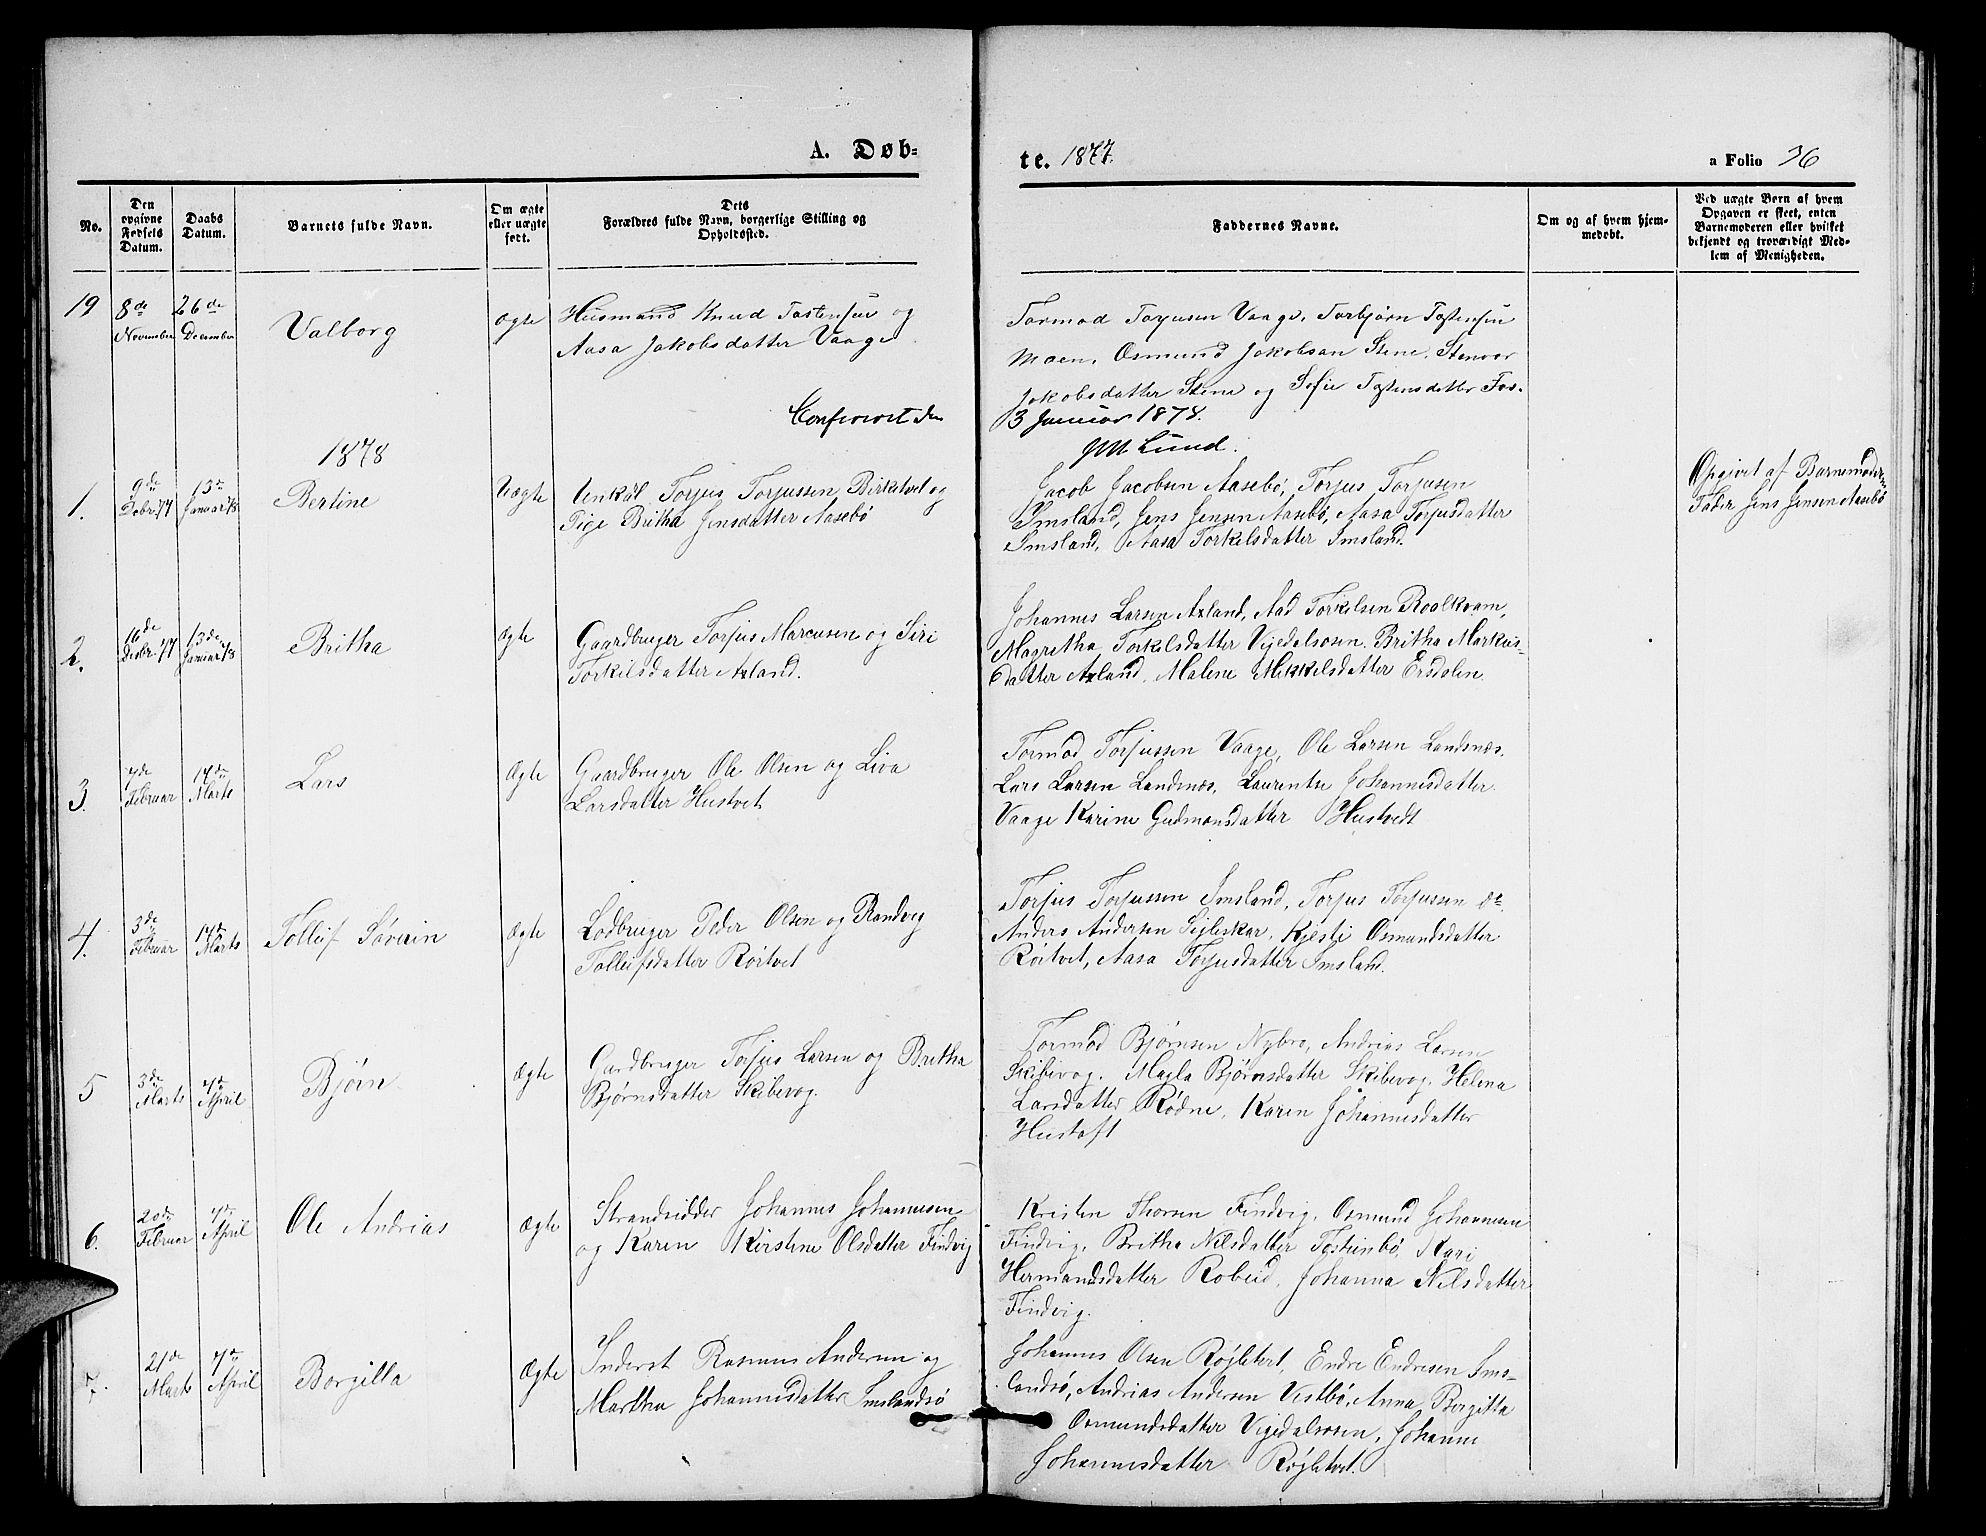 A. Døb=
te. 1877.
a Folio 36
No.
Den
opgivne
Fødsels
Datum.
Daabs
Datum.
Barnets fulde Navn.
Om ægte
eller uægte
født.
Dets
Forældres fulde Navn, borgerlige Stilling og
Opholdssted.
Faddernes Navne.
Om og af hvem hjem=
medøbt.
Ved uægte Børn af hvem
Opgaven er skeet, enten
Barnemoderen eller hvilket
bekjendt og troværdigt Med=
lem af Menigheden.
19
8de
November
26de
December
Valborg
ægte
Husmand Knud Tostensen og
Aasa Jakobsdatter Vaage
Tormod Torjusen Vaage, Torbjørn Tostensen
Moen, Osmund Jakobsen Stene, Stenvor
Jakobsdatter Stene og Sofie Tostensdatter Fos.
Confereret den
3 Januar 1878.
Lund.
1878
1.
9de
Debr. 77
13de
Januar 78
Bertine
Uægte
Unkal Torjus Torjussen Birketvet og
Pige Britha Jensdatter Aasebø
Jacob Jacobsen Aasebø, Torjus Torjusen
Imsland, Jens Jensen Aasebø, Aasa Torjusdatter
Imsland, Aasa Torkelsdatter Imsland.
Opgivet af Barnemoderens
Fader Jens Jensen Aasebø
2.
16de
Debr. 77
13de
Januar 78
Britha
Ægte
Gaardbruger Torjus Marcusen og Siri
Torkilsdatter Axland.
Johannes Larsen Axland, Aad Torkelsen Roalkvam,
Magretha Torkelsdatter Vigedalsosen. Britha Markus-
datter Axland, Malene Mikkelsdatter Ersdalen.
3.
7de
Februar
14de
Marts
Lars
Ægte
Gaardbruger Ole Olsen og Liva
Larsdatter Hustvet
Tormod Torjussen Vaage, Ole Larsen Landsnæs.
Lars Larsen Landsnæs, Laurentse Johannesdatter
Vaage Karine Gudmonsdatter Hustvedt
4.
3de
Februar
14de
Marts
Tolleif Søvrein
Ægte
Lodbruger Peder Olsen og Randvig
Tolleifsdatter Röitvet
Torjus Torjussen Imsland, Torjus Torjussen do.
Anders Andersen Sijleskar, Kjesti Osmundsdatter
Röitvet, Aasa Torjusdatter Imsland.
5
3de
Marts
7de
April
Bjørn
Ægte
Gardbruger Torjus Larsen og Britha
Bjørnsdatter Skibevog.
Tormod Bjørnsen Nybro, Andrias Larsen
Skibevog. Magla Bjørnsdatter Skibevog, Helena
Larsdatter Rødne, Karen Johannesdatter
Hustoft
6.
20de
Februar
7de
April
Ole Andrias
Ægte
Strandsidder Johannes Johannesen
og Karen Kirstene Olsdatter Findvig
Kristen Thorsen Findvig, Osmund Johannesen
Findvig, Britha Nilsdatter Tosteinbø, Kari
Hermandsdatter Robeid, Johanna Nilsdatter
Findvig.
7.
21de
Marts
7de
April
Borgilla
Ægte
Inderst Rasmus Andersen og
Martha Johannesdatter Imslandsø
Johannes Olsen Røjletvet, Endre Endresen Ims-
landsø, Andrias Andersen Vestbø, Anna Bergitta
Osmundsdatter Vigedalsosen, Johanne
Johannesdatter Røjletvet.